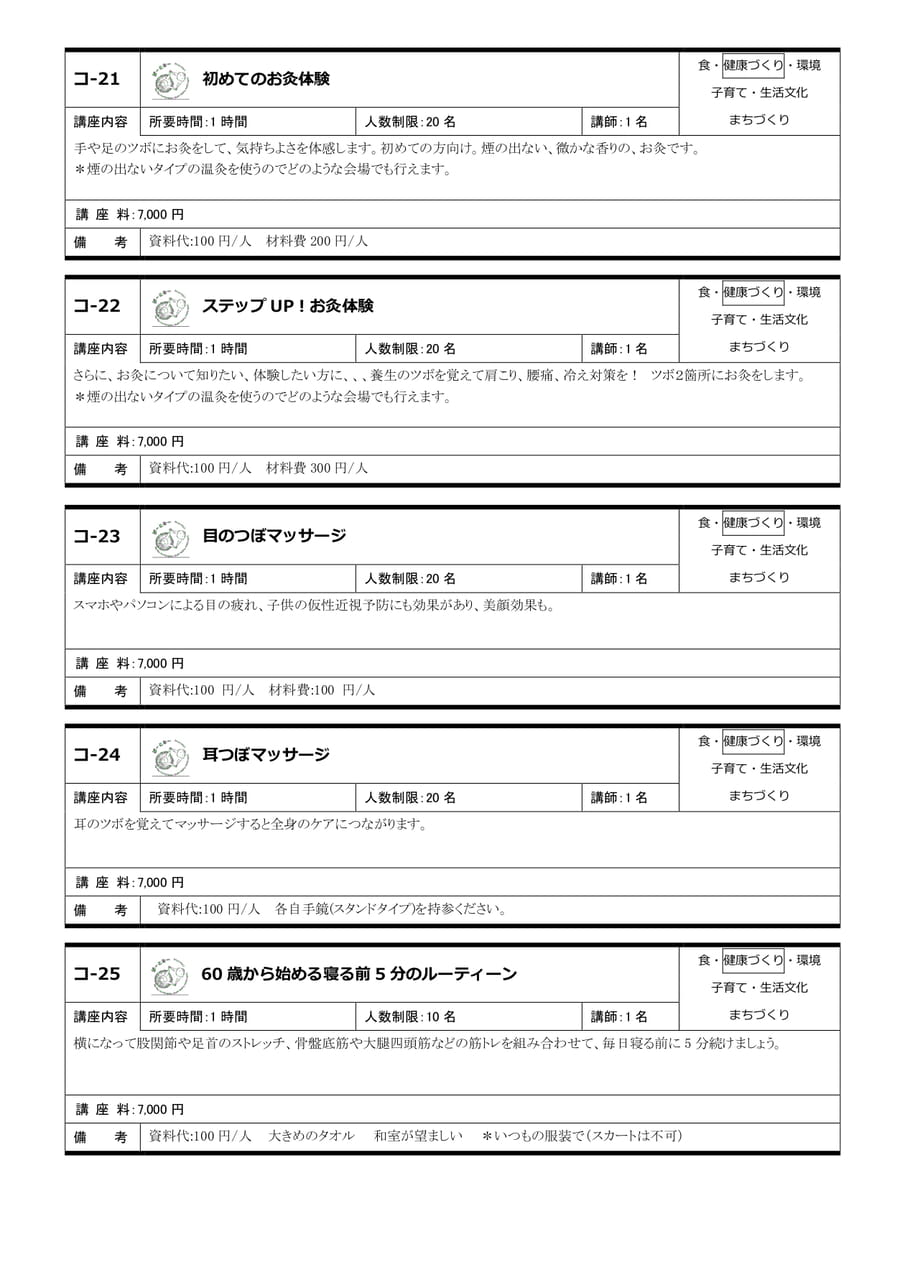 コ-21 初めてのお灸体験 食・健康づくり・環境
子育て・生活文化
講座内容 所要時間：1 時間 人数制限：20 名 講師：1 名 まちづくり
手や足のツボにお灸をして、気持ちよさを体感します。初めての方向け。煙の出ない、微かな香りの、お灸です。
＊煙の出ないタイプの温灸を使うのでどのような会場でも行えます。
講 座 料：7,000 円
備 考 資料代:100 円/人 材料費 200 円/人
コ-22 ステップ UP！お灸体験 食・健康づくり・環境
子育て・生活文化
講座内容 所要時間：1 時間 人数制限：20 名 講師：1 名 まちづくり
さらに、お灸について知りたい、体験したい方に、、、養生のツボを覚えて肩こり、腰痛、冷え対策を！ ツボ２箇所にお灸をします。
＊煙の出ないタイプの温灸を使うのでどのような会場でも行えます。
講 座 料：7,000 円
備 考 資料代:100 円/人 材料費 300 円/人
コ-23 目のつぼマッサージ 食・健康づくり・環境
子育て・生活文化
講座内容 所要時間：1 時間 人数制限：20 名 講師：1 名 まちづくり
スマホやパソコンによる目の疲れ、子供の仮性近視予防にも効果があり、美顔効果も。
講 座 料：7,000 円
備 考 資料代:100 円/人 材料費:100 円/人
コ-24 耳つぼマッサージ 食・健康づくり・環境
子育て・生活文化
講座内容 所要時間：1 時間 人数制限：20 名 講師：1 名 まちづくり
耳のツボを覚えてマッサージすると全身のケアにつながります。
講 座 料：7,000 円
備 考 資料代:100 円/人 各自手鏡(スタンドタイプ)を持参ください。
コ-25 60 歳から始める寝る前 5 分のルーティーン 食・健康づくり・環境
子育て・生活文化
講座内容 所要時間：1 時間 人数制限：10 名 講師：1 名 まちづくり
横になって股関節や足首のストレッチ、骨盤底筋や大腿四頭筋などの筋トレを組み合わせて、毎日寝る前に 5 分続けましょう。
講 座 料：7,000 円
備 考 資料代:100 円/人 大きめのタオル 和室が望ましい ＊いつもの服装で（スカートは不可）